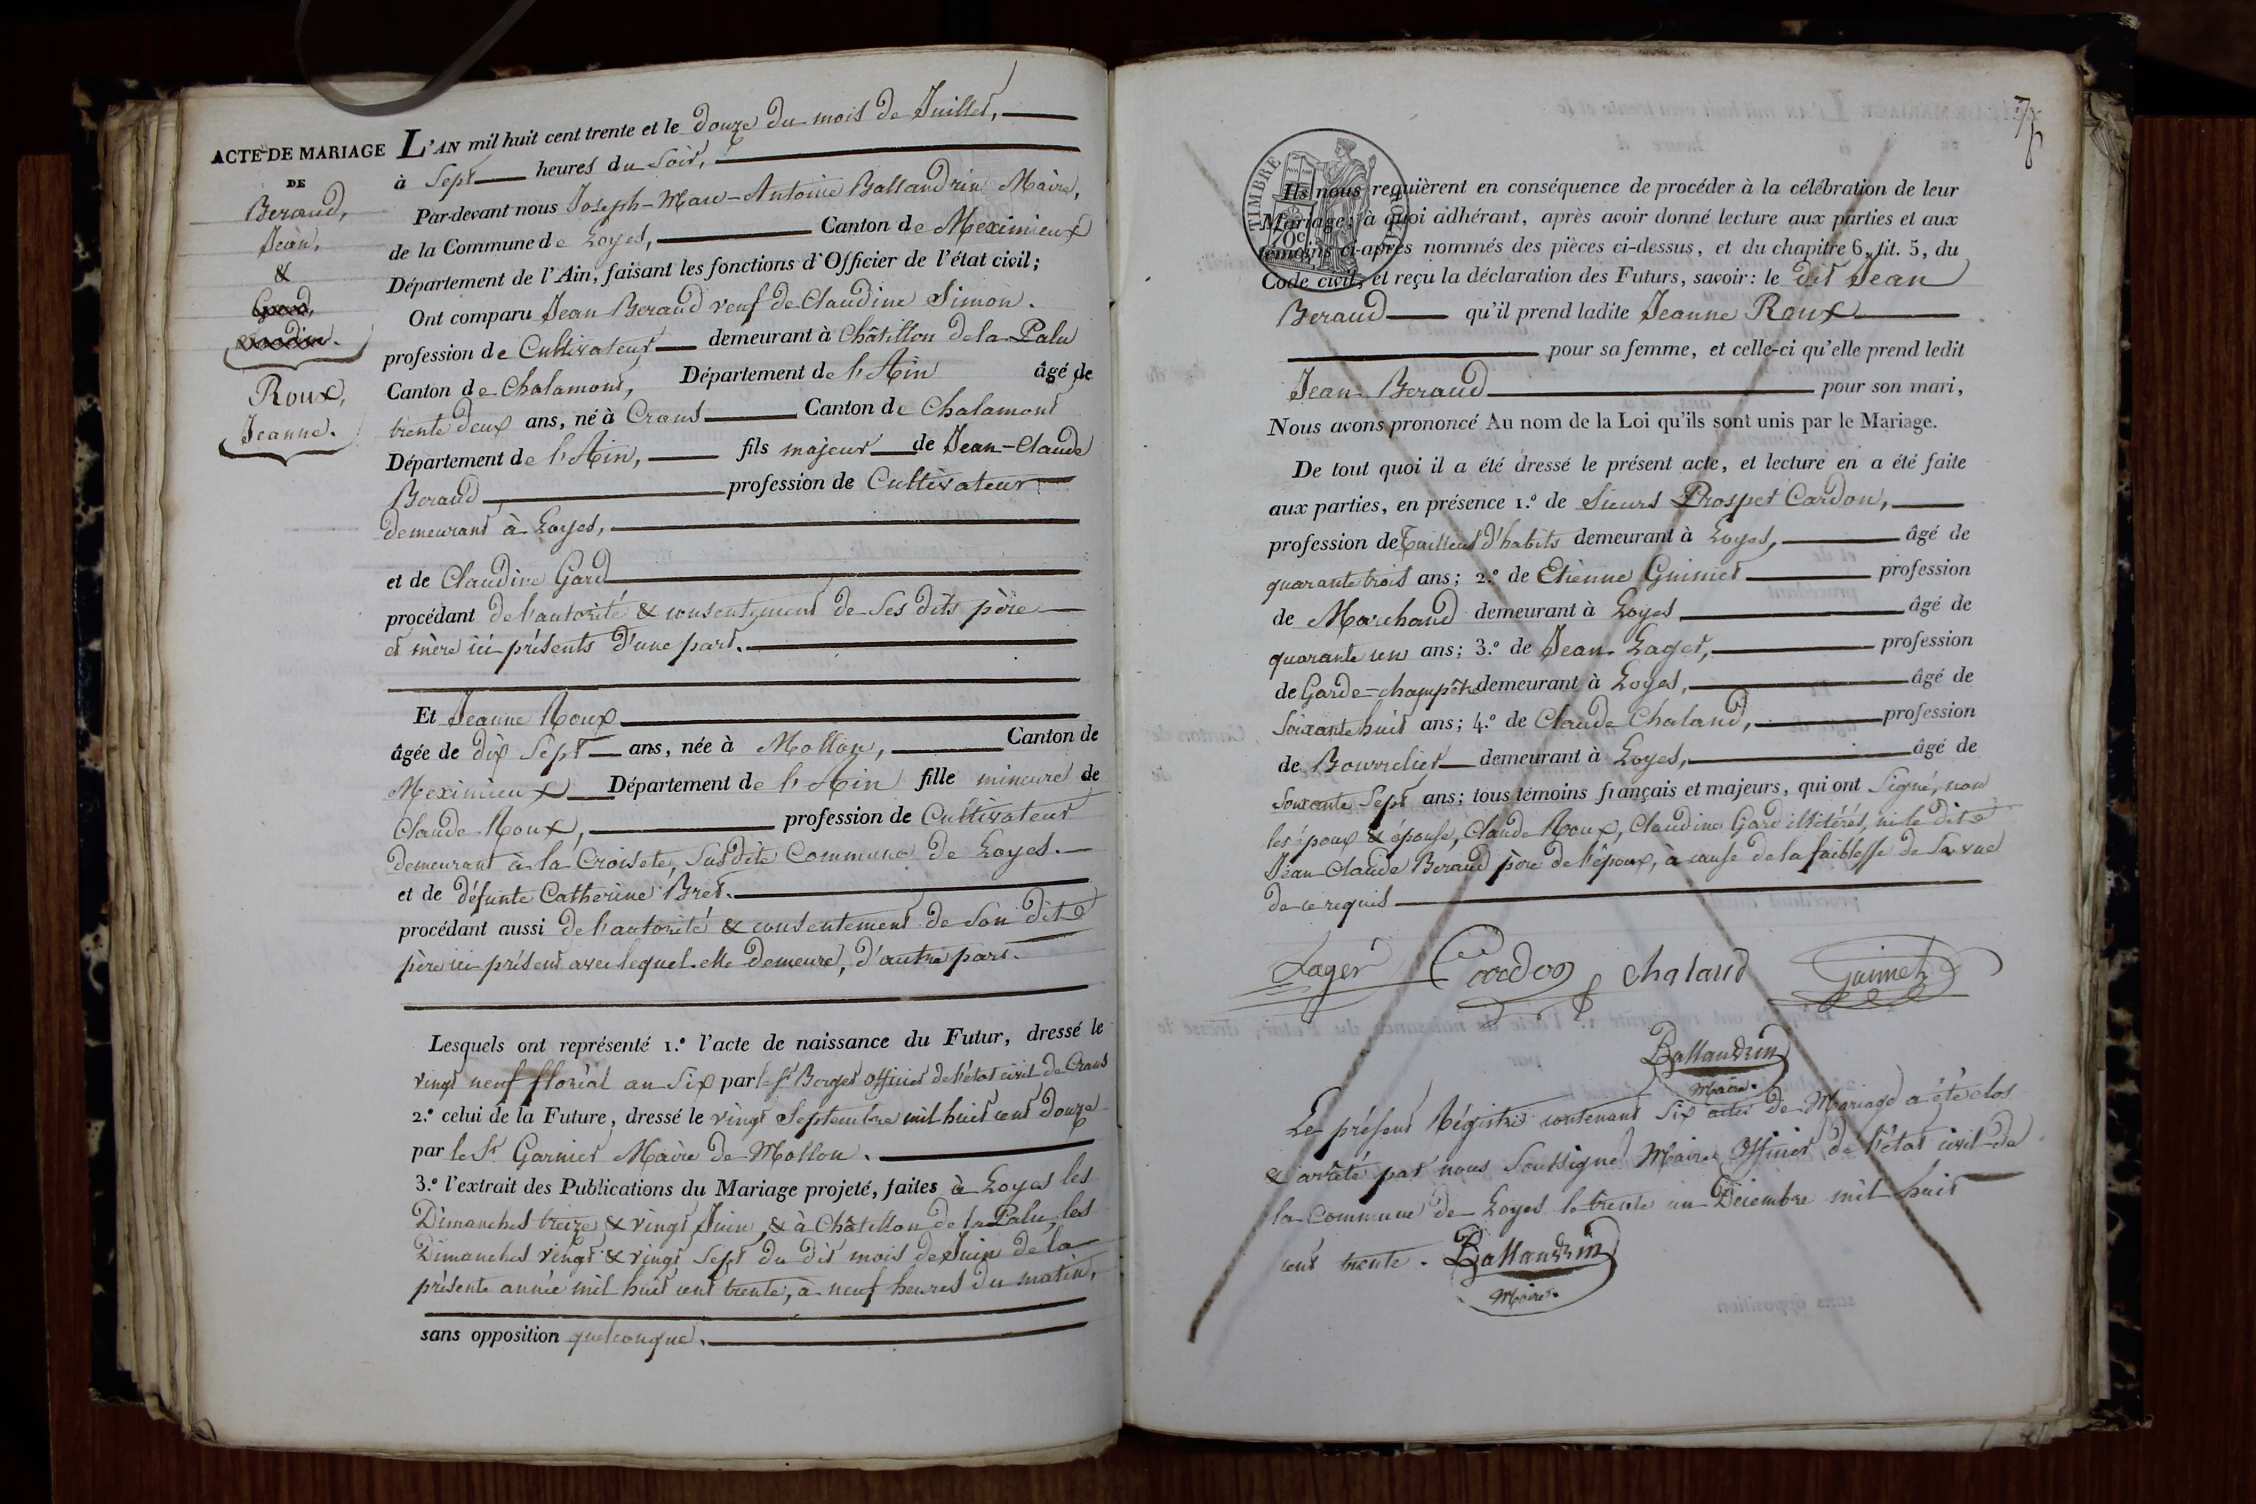 ACTE DE MARIAGE
DE
Beraud,
Jean,
&
Roux,
Jeanne.
L'AN mil huit cent trente et le douze du mois de Juillet,
à Sept heures du Soir,
Par-devant nous Joseph-Marc-Antoine Ballandrin Maire,
de la Commune de Loyes, Canton de Meximieux
Département de l'Ain, faisant les fonctions d'Officier de l'état civil;
Ont comparu Jean Beraud veuf de Claudine Simon.
profession de Cultivateur demeurant à Châtillon de la Palu
Canton de Chalamont, Département de l'Ain âgé de
trente deux ans, né à Crans Canton de Chalamont
Département de l'Ain, fils majeur de Jean-Claude
Beraud, profession de Cultivateur
demeurant à Loyes,
et de Claudine Gard
procédant de l'autorité & consentement de Ses dits père
et mère ici présents d'une part.
Et Jeanne Roux
âgée de dix Sept ans, née à Mollon, Canton de
Meximieux Département de l'Ain fille mineure de
Claude Roux, profession de Cultivateur
demeurant à la Croisete, Susdite Commune de Loyes.
et de défunte Catherine Bret.
procédant aussi de l'autorité & consentement de Son dit
père ici présent avec lequel elle demeure, d'autre part.
Lesquels ont représenté 1.° l'acte de naissance du Futur, dressé le
vingt neuf floréal an Six par le Sr Berger officier de l'état civil de Crans
2.° celui de la Future, dressé le vingt Septembre mil huit cent douze
par le Sr Garnier Maire de Mollon.
3.° l'extrait des Publications du Mariage projeté, faites à Loyes les
Dimanches treize & vingt Juin, & à Châtillon de la Palu, les
Dimanches vingt & vingt Sept du dit mois de Juin de la
présente année mil huit cent trente, à neuf heures du matin,
sans opposition quelconque.
TIMBRE
70c
Ils nous requièrent en conséquence de procéder à la célébration de leur
Mariage; à quoi adhérant, après avoir donné lecture aux parties et aux
témoins ci-après nommés des pièces ci-dessus, et du chapitre 6, tit. 5, du
Code civil, et reçu la déclaration des Futurs, savoir: le dit Jean
Beraud qu'il prend ladite Jeanne Roux
pour sa femme, et celle-ci qu'elle prend ledit
Jean Beraud pour son mari,
Nous avons prononcé Au nom de la Loi qu'ils sont unis par le Mariage.
De tout quoi il a été dressé le présent acte, et lecture en a été faite
aux parties, en présence 1.° de Sieurs Prosper Cardon,
profession de Tailleur d'habits demeurant à Loyes, âgé de
quarante trois ans; 2.° de Etienne Guimet profession
de Marchand demeurant à Loyes âgé de
quarante un ans; 3.° de Jean Lager, profession
de Garde-champêtre demeurant à Loyes, âgé de
Soixante huit ans; 4.° de Claude Chaland, profession
de Bourrelier demeurant à Loyes, âgé de
Soixante Sept ans; tous témoins français et majeurs, qui ont Signé, non
les époux & épouse, Claude Roux, Claudine Gard illitérés, ni le dit
Jean Claude Beraud père de l'époux, à cause de la faiblesse de Sa vue
de ce requis
Lager Cardon Chaland Guimet
Ballandrin
Maire.
Le présent Régistre contenant Six actes de Mariage a été clos
& arrêté par nous Soussigné Maire Officier de l'état civil de
la Commune de Loyes le trente un Décembre mil huit
cent trente. Ballandrin
Maire.